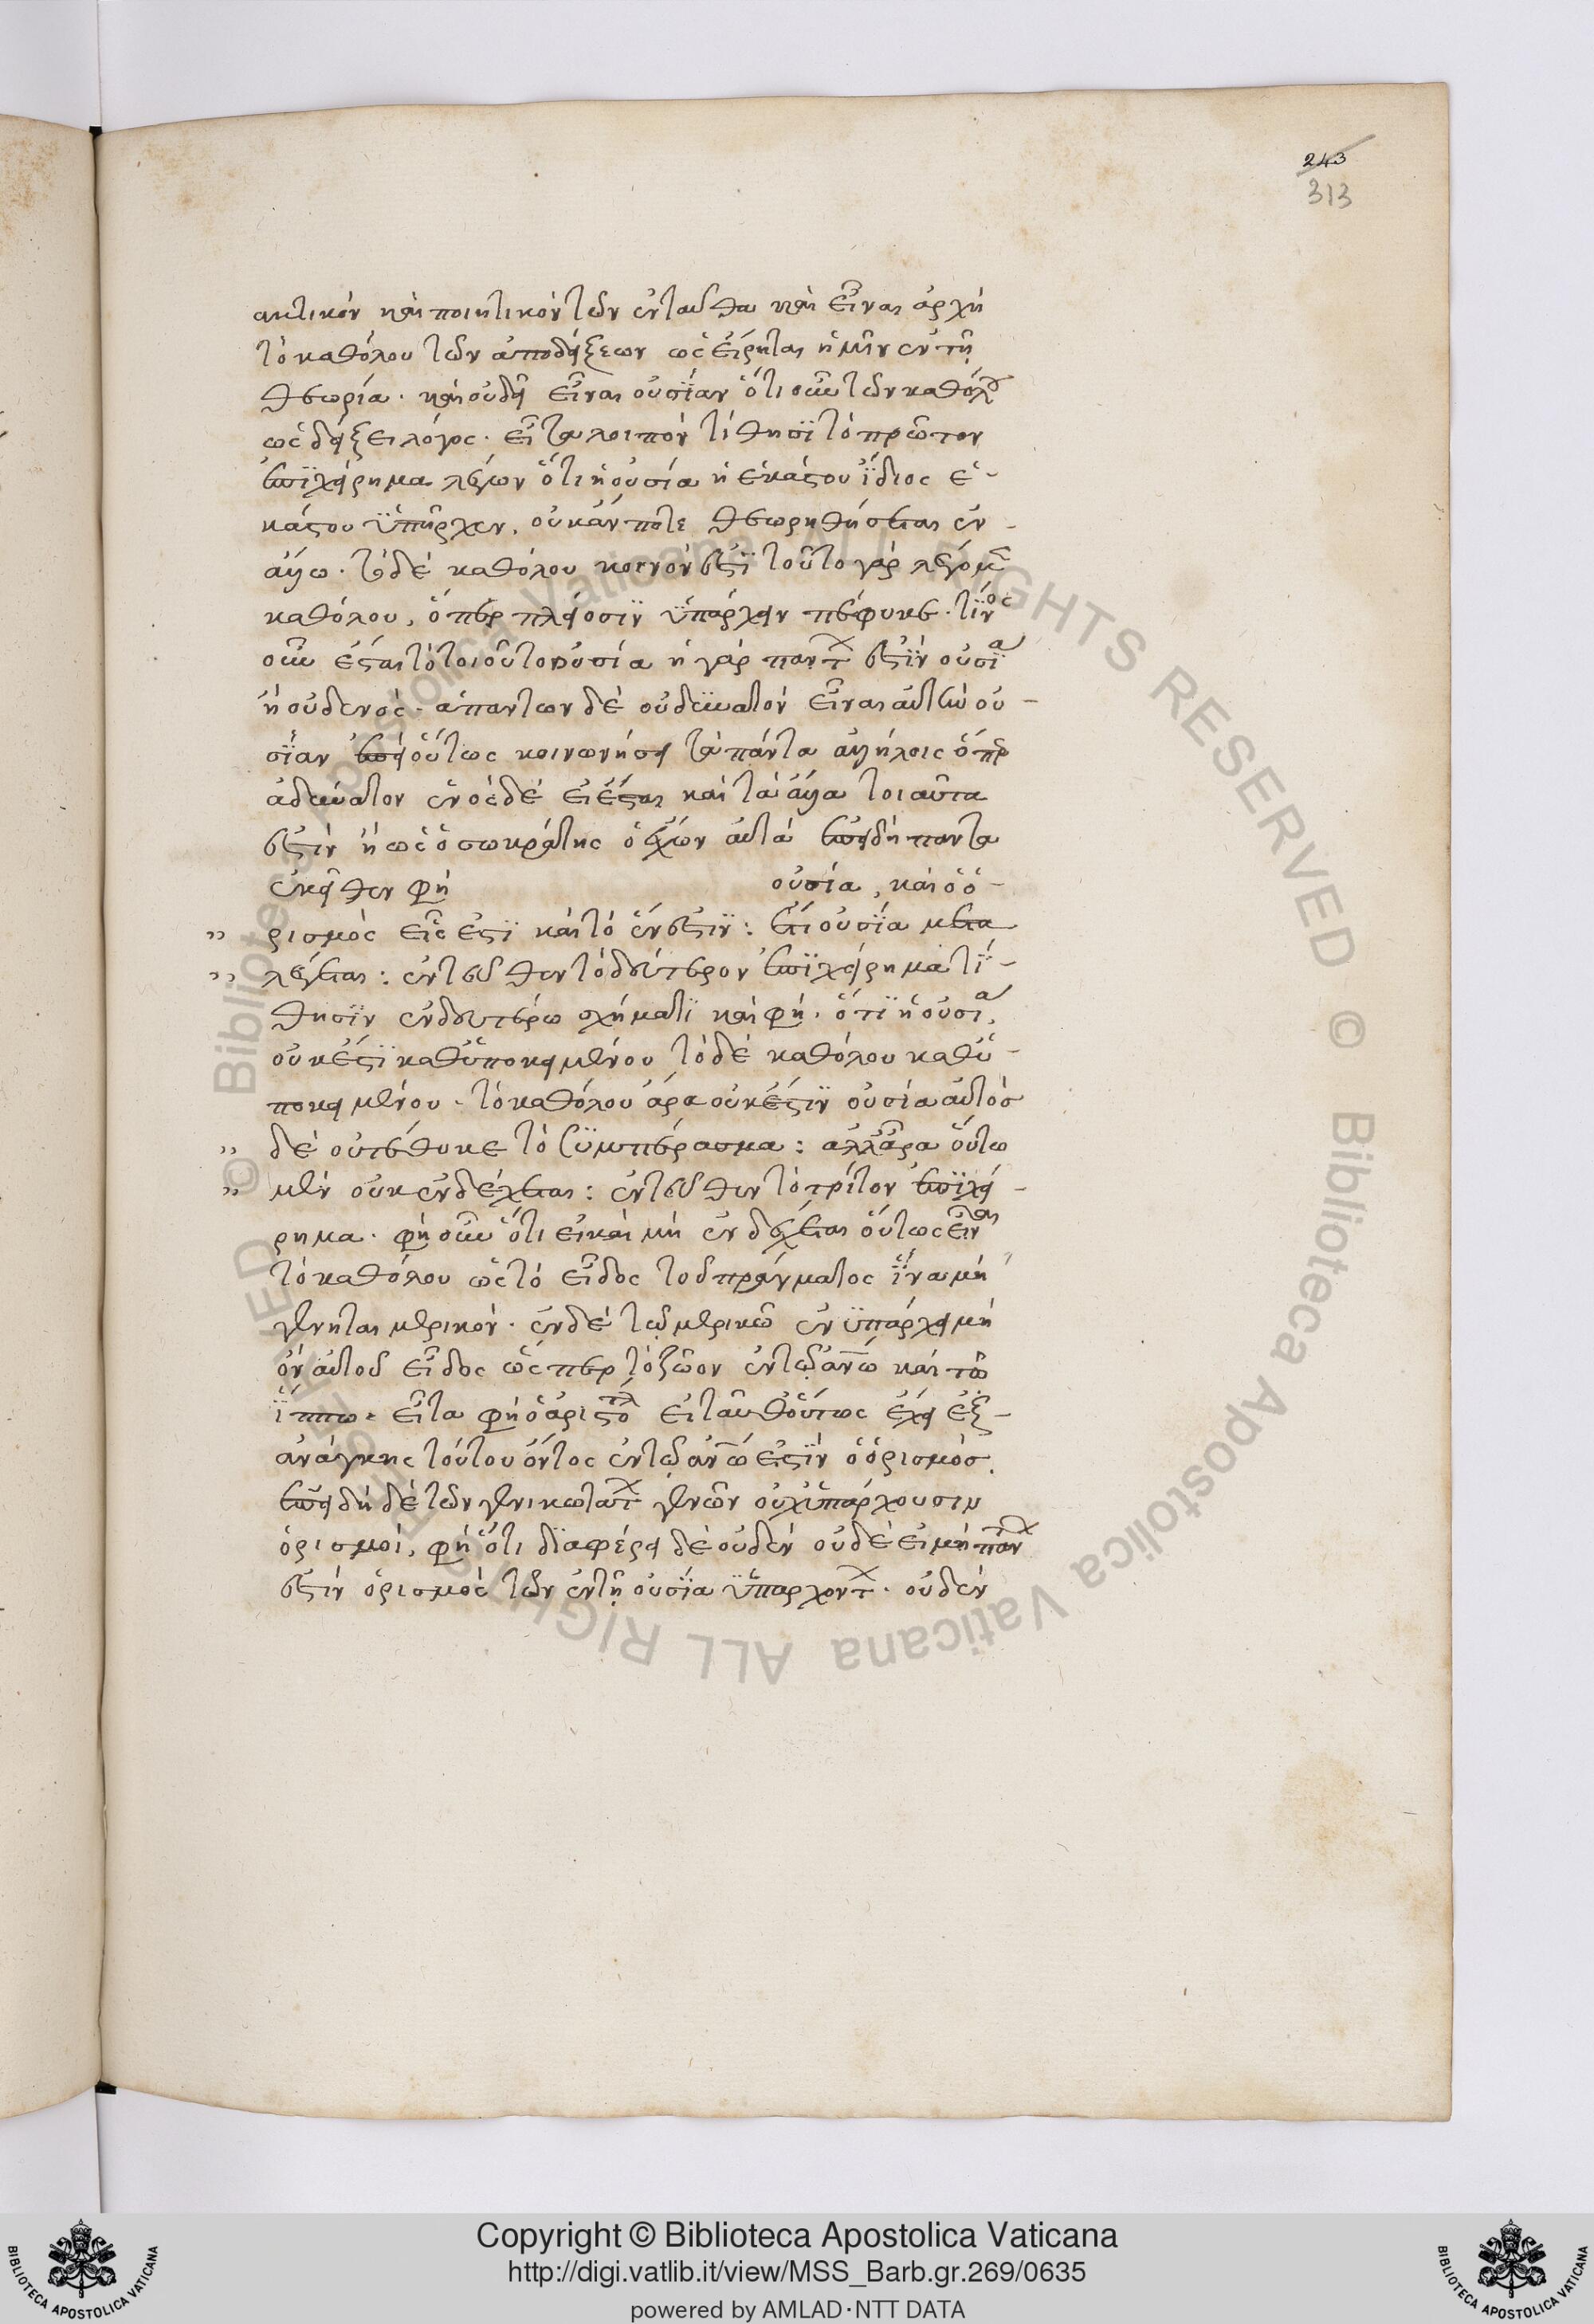 243
313
ακτικὸν καὶ ποιητικὸν τῶν ἐνταῦθα καὶ εἶναι ἀρχὴ
τὸ καθόλου τῶν ἀποδείξεων ὡς εἴρηται ἡμῖν ἐν τῆ
θεωρία. καὶ οὐδεὶ εἶναι οὐσίαν ὅτι οὖν τῶν καθόλου
ὡς δείξει λόγος. εἶτα λοιπὸν τίθησι τὸ πρῶτον
ἐπιχείρημα λέγων ὅτι ἡ οὐσία ἡ ἑκάστου ἴδιος ἑ-
κάστου ὑπῆρχεν, οὐκ ἄν ποτε θεωρηθήσεται ἐν
ἄλλω. τὸ δὲ καθόλου κοινὸν ἐστὶ τοῦτο γὰρ λέγομεν
καθόλου, ὅπερ πλείοσιν ὑπάρχειν πέφυκε. τίνος
οὖν ἔσται τὸ τοιοῦτον οὐσία ἢ γὰρ πάντων ἐστὶν οὐσία
ἢ οὐδενός. ἁπάντων δὲ οὐ δυνατὸν εἶναι αὐτὴν οὐ-
σίαν ἐπεὶ οὕτως κοινωνήσει τὰ πάντα ἀλλήλοις ὅπερ
ἀδύνατον ἑνὸς δὲ εἰ ἔσται καὶ τὰ ἄλλα τοιαῦτα
ἐστὶν ἢ ὡς ὁ σωκράτης ὁ ἔχων αὐτὰ ἐπειδὴ παντα
ἐκεῖθεν φη οὐσία, καὶ ὁ ὁ-
" ρισμὸς εἷς ἐστι καὶ τὸ ἕν ἐστιν: ἔτι οὐσία μετα
" λέγεται: ἐντεῦθεν τὸ δεύτερον ἐπιχείρημα τί-
θησιν ἐν δευτέρω σχήματι καὶ φη. ὅτι ἡ οὐσία,
οὐκ ἔστι καθ ὑποκειμένου τὸ δὲ καθόλου καθ ὑ-
ποκειμένου. τὸ καθόλου ἄρα οὐκ ἔστιν οὐσία αὐτὸς
" δὲ οὐ τέθηκε τὸ συμπέρασμα: ἀλλ ἆρα οὕτω
" μὲν οὐκ ἐνδέχεται: ἐντεῦθεν τὸ τρίτον ἐπιχεί-
ρημα. φη οὖν ὅτι εἰ καὶ μὴ ἐνδέχεται οὕτως εἶναι
τὸ καθόλου ὡς τὸ εἶδος τοῦ πράγματος ἵνα μὴ
γένηται μερικόν. ἐν δὲ τῶ μερικῶ ἐνυπάρχει μὴ
ὂν αὐτοῦ εἶδος ὥσπερ τὸ ζῶον ἐν τῶ ἀνω καὶ τῶ
ἵππω. εἶτα φη ὁ ἀριστο εἰ ταῦθ οὕτως ἔχει ἐξ-
ἀνάγκης τούτου ὄντος ἐν τῶ ἀνω ἐστὶν ὁ ὁρισμός.
ἐπειδὴ δὲ τῶν γενικωτάτων γενῶν οὐχ ὑπάρχουσιν
ὁρισμοί, φη ὅτι διαφέρει δὲ οὐδὲν οὐδὲ εἰ μὴ πάντων
ἐστὶν ὁρισμὸς τῶν ἐν τῆ οὐσία ὑπαρχόντων. οὐδὲν
Copyright © Biblioteca Apostolica Vaticana
http://digi.vatlib.it/view/MSS_Barb.gr.269/0635
powered by AMLAD·NTT DATA